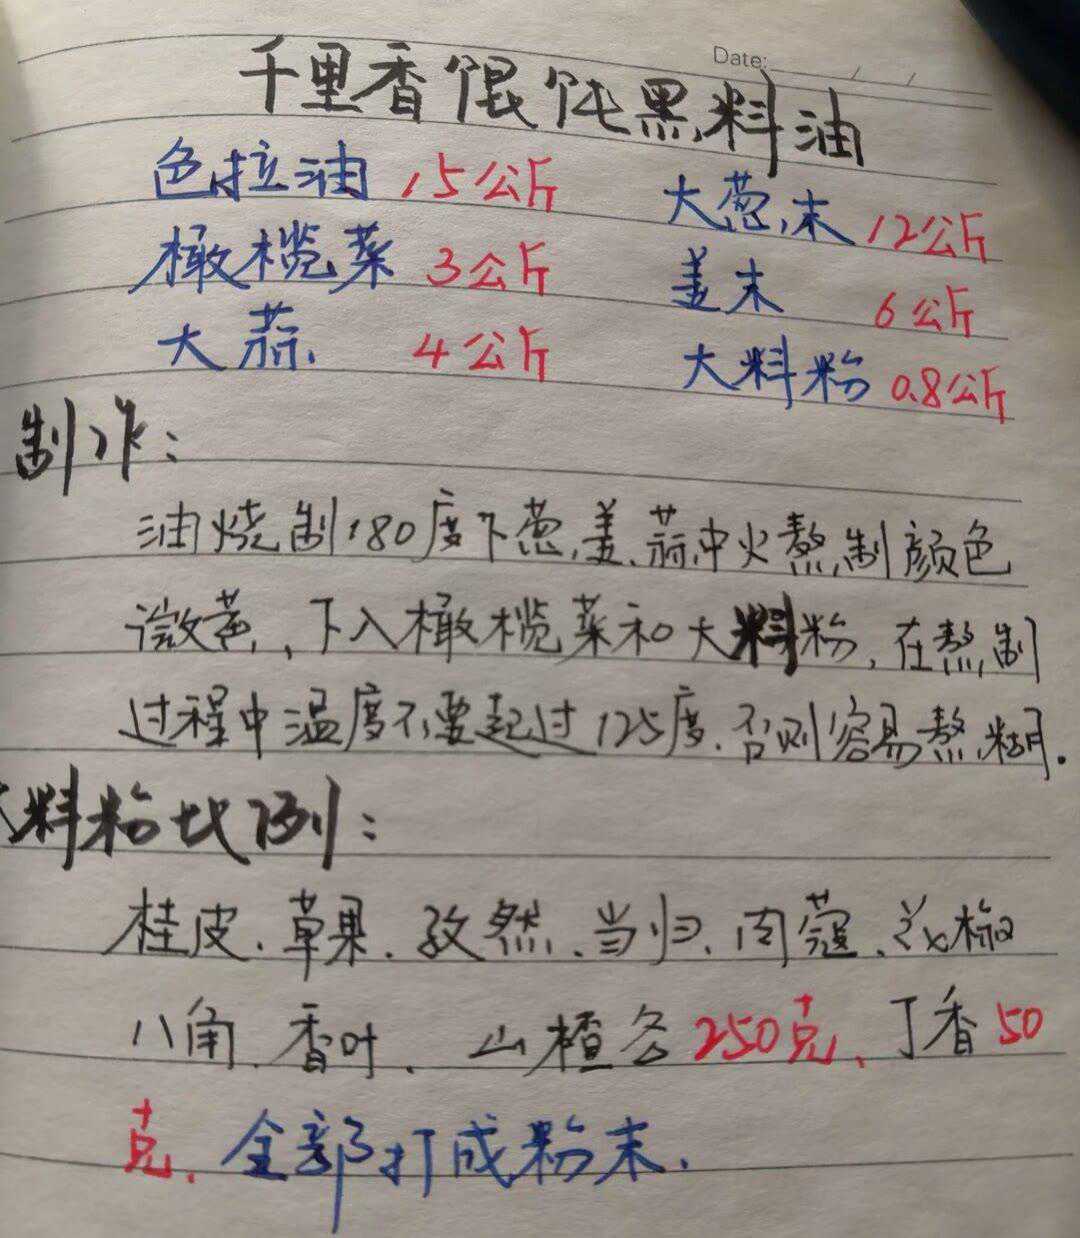 Date: / /
千里香馄饨黑料油
色拉油 15公斤 大葱末 12公斤
橄榄菜 3公斤 姜末 6公斤
大蒜 4公斤 大料粉 0.8公斤
制作：
油烧制180度下葱、姜、蒜中火熬制颜色
微黄，下入橄榄菜和大料粉，在熬制
过程中温度不要超过125度，否则容易熬糊。
大料粉比例：
桂皮、草果、孜然、当归、肉蔻、花椒
八角、香叶、山楂各250克、丁香50
克、全部打成粉末、